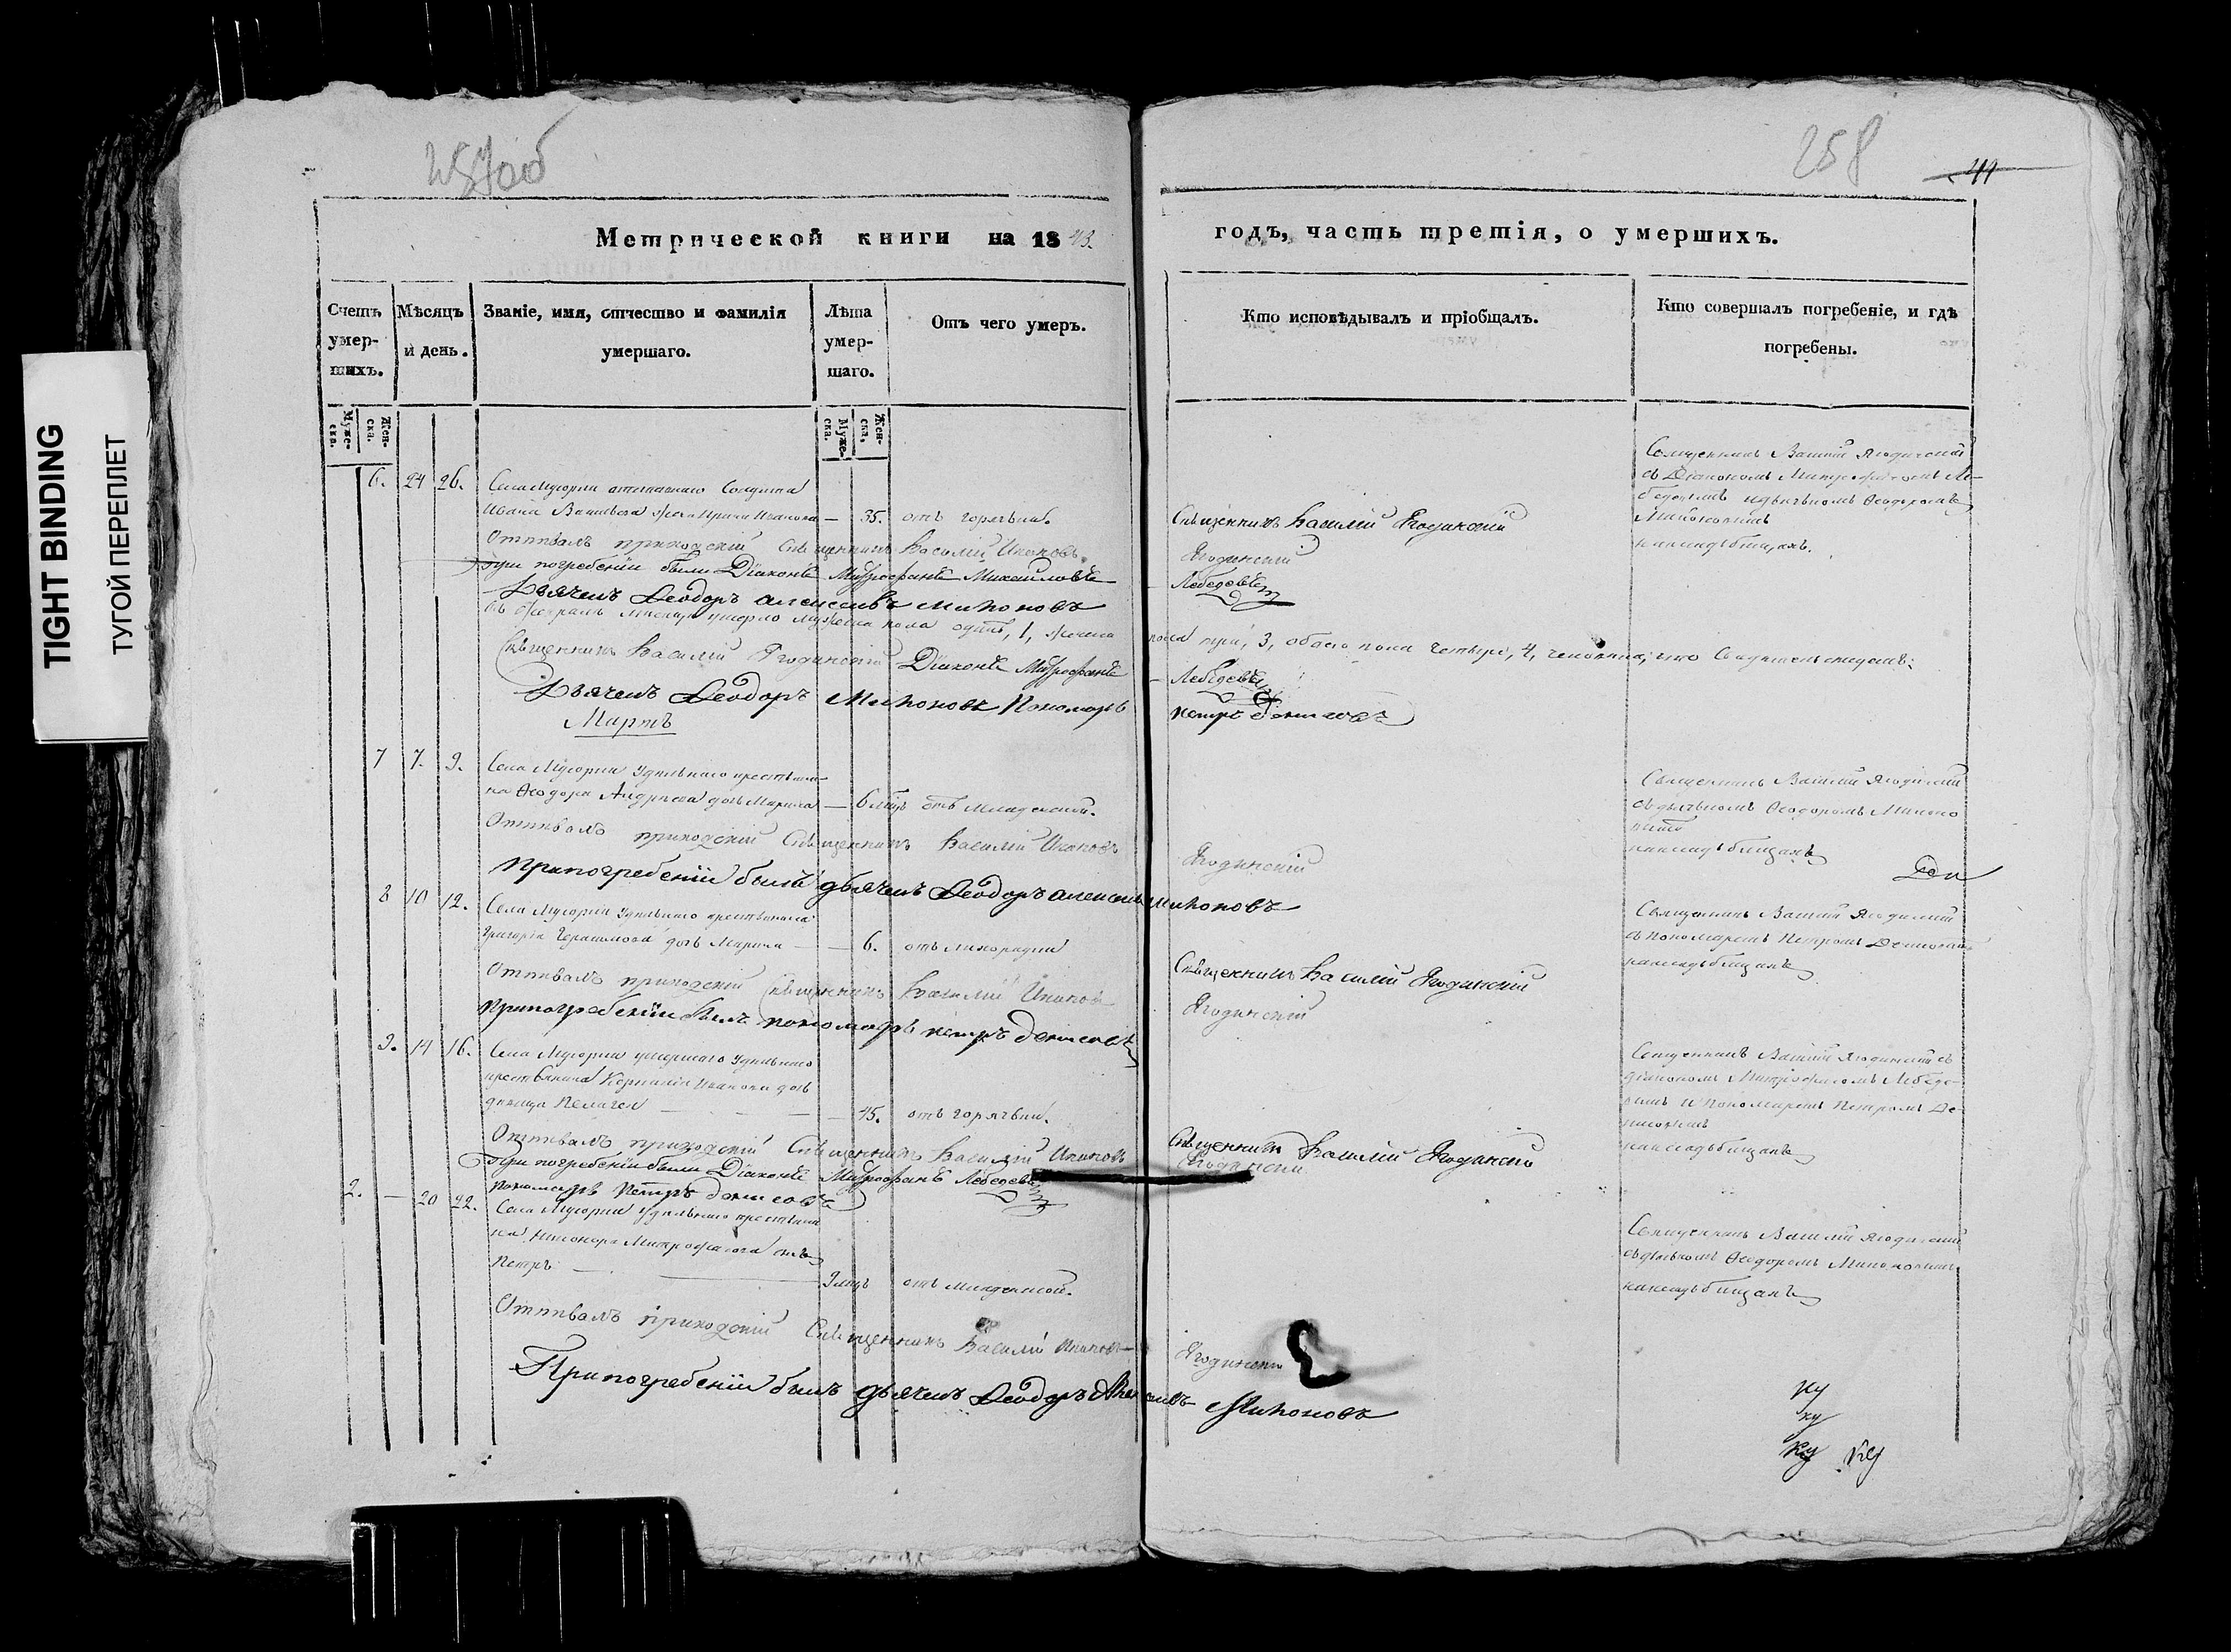 TIGHT BINDING
ТУГОЙ ПЕРЕПЛЕТ
257об
258
41
Метрической книги на 1843.
годъ, часть третія, о умершихъ.
Счетъ умер-шихъ.
Мѣсяцъ и день.
Званіе, имя, отчество и фамилія умершаго.
Лѣта умер-шаго.
Отъ чего умеръ.
Кто исповѣдывалъ и пріобщалъ.
Кто совершалъ погребеніе, и гдѣ погребены.
Муже-ска.
Жен-ска.
Муже-ска.
Жен-ска.
6. 24 26. Села Солдата
Ивана Васильева жена Ирина Иванова — 35. отъ горячки.
Священникъ Василій Ягодинскій
Священникъ Василій Ягодинскій
съ Діакономъ Митрофаномъ Ле-
бедевымъ и дьячкомъ Ѳеодоромъ
на кладбищахъ.
Отпѣвалъ приходскій Священникъ Василій Ивановъ
Ягодинскій
При погребеніи были Діаконъ Митрофанъ Михайловъ
Лебедевъ
Дьячекъ Ѳеодоръ Алексеевъ
въ Февралѣ месяцѣ умерло мужеска пола одинъ, 1, женска
пола три, 3, обоего пола четыре, 4, человѣка; что свидѣтельствуемъ:
Священникъ Василій Ягодинскій Діаконъ Митрофанъ
Лебедевъ
Дьячекъ Ѳеодоръ Пономарь
Петръ Денисовъ
Мартъ
7 7. 9. Села Удѣльнаго крестьяни-
на Ѳеодора Андреева дочь Марина — 6 мцъ отъ младенской.
Священникъ Василій Ягодинскій
съ дьячкомъ Ѳеодоромъ
на кладбищахъ
Отпѣвалъ приходскій Священникъ Василій Ивановъ
Ягодинскій
При погребеніи былъ дьячекъ Ѳеодоръ
8 10 12. Села Удѣльнаго крестьянина
Григорія Герасимова дочь Марина — 6. отъ лихорадки
Священникъ Василій Ягодинскій
Священникъ Василій Ягодинскій
съ пономаремъ Петромъ Денисовымъ
на кладбищахъ
Отпѣвалъ приходскій Священникъ Василій Ивановъ
Ягодинскій
При погребеніи былъ пономарь Петръ Денисовъ
9. 14 16. Села умершаго Удѣльнаго
крестьянина Корнилія Иванова дочь
дѣвица Пелагея — 45. отъ горячки.
Священникъ Василій Ягодинскій
Священникъ Василій Ягодинскій съ
діакономъ Митрофаномъ Лебеде-
вымъ и пономаремъ Петромъ Де-
нисовымъ
на кладбищахъ
Отпѣвалъ приходскій Священникъ Василій Ивановъ
Ягодинскій
При погребеніи были Діаконъ Митрофанъ Лебедевъ
пономарь Петръ Денисовъ
2. — 20 22. Села Удѣльнаго крестьяни-
на Никонора Митрофанова сынъ
Петръ — 9 мцъ отъ младенской.
Священникъ Василій Ягодинскій
съ дьячкомъ Ѳеодоромъ
на кладбищахъ
Отпѣвалъ приходскій Священникъ Василій Ивановъ
Ягодинскій
При погребеніи былъ дьячекъ Ѳеодоръ
ку
ку
ку ку